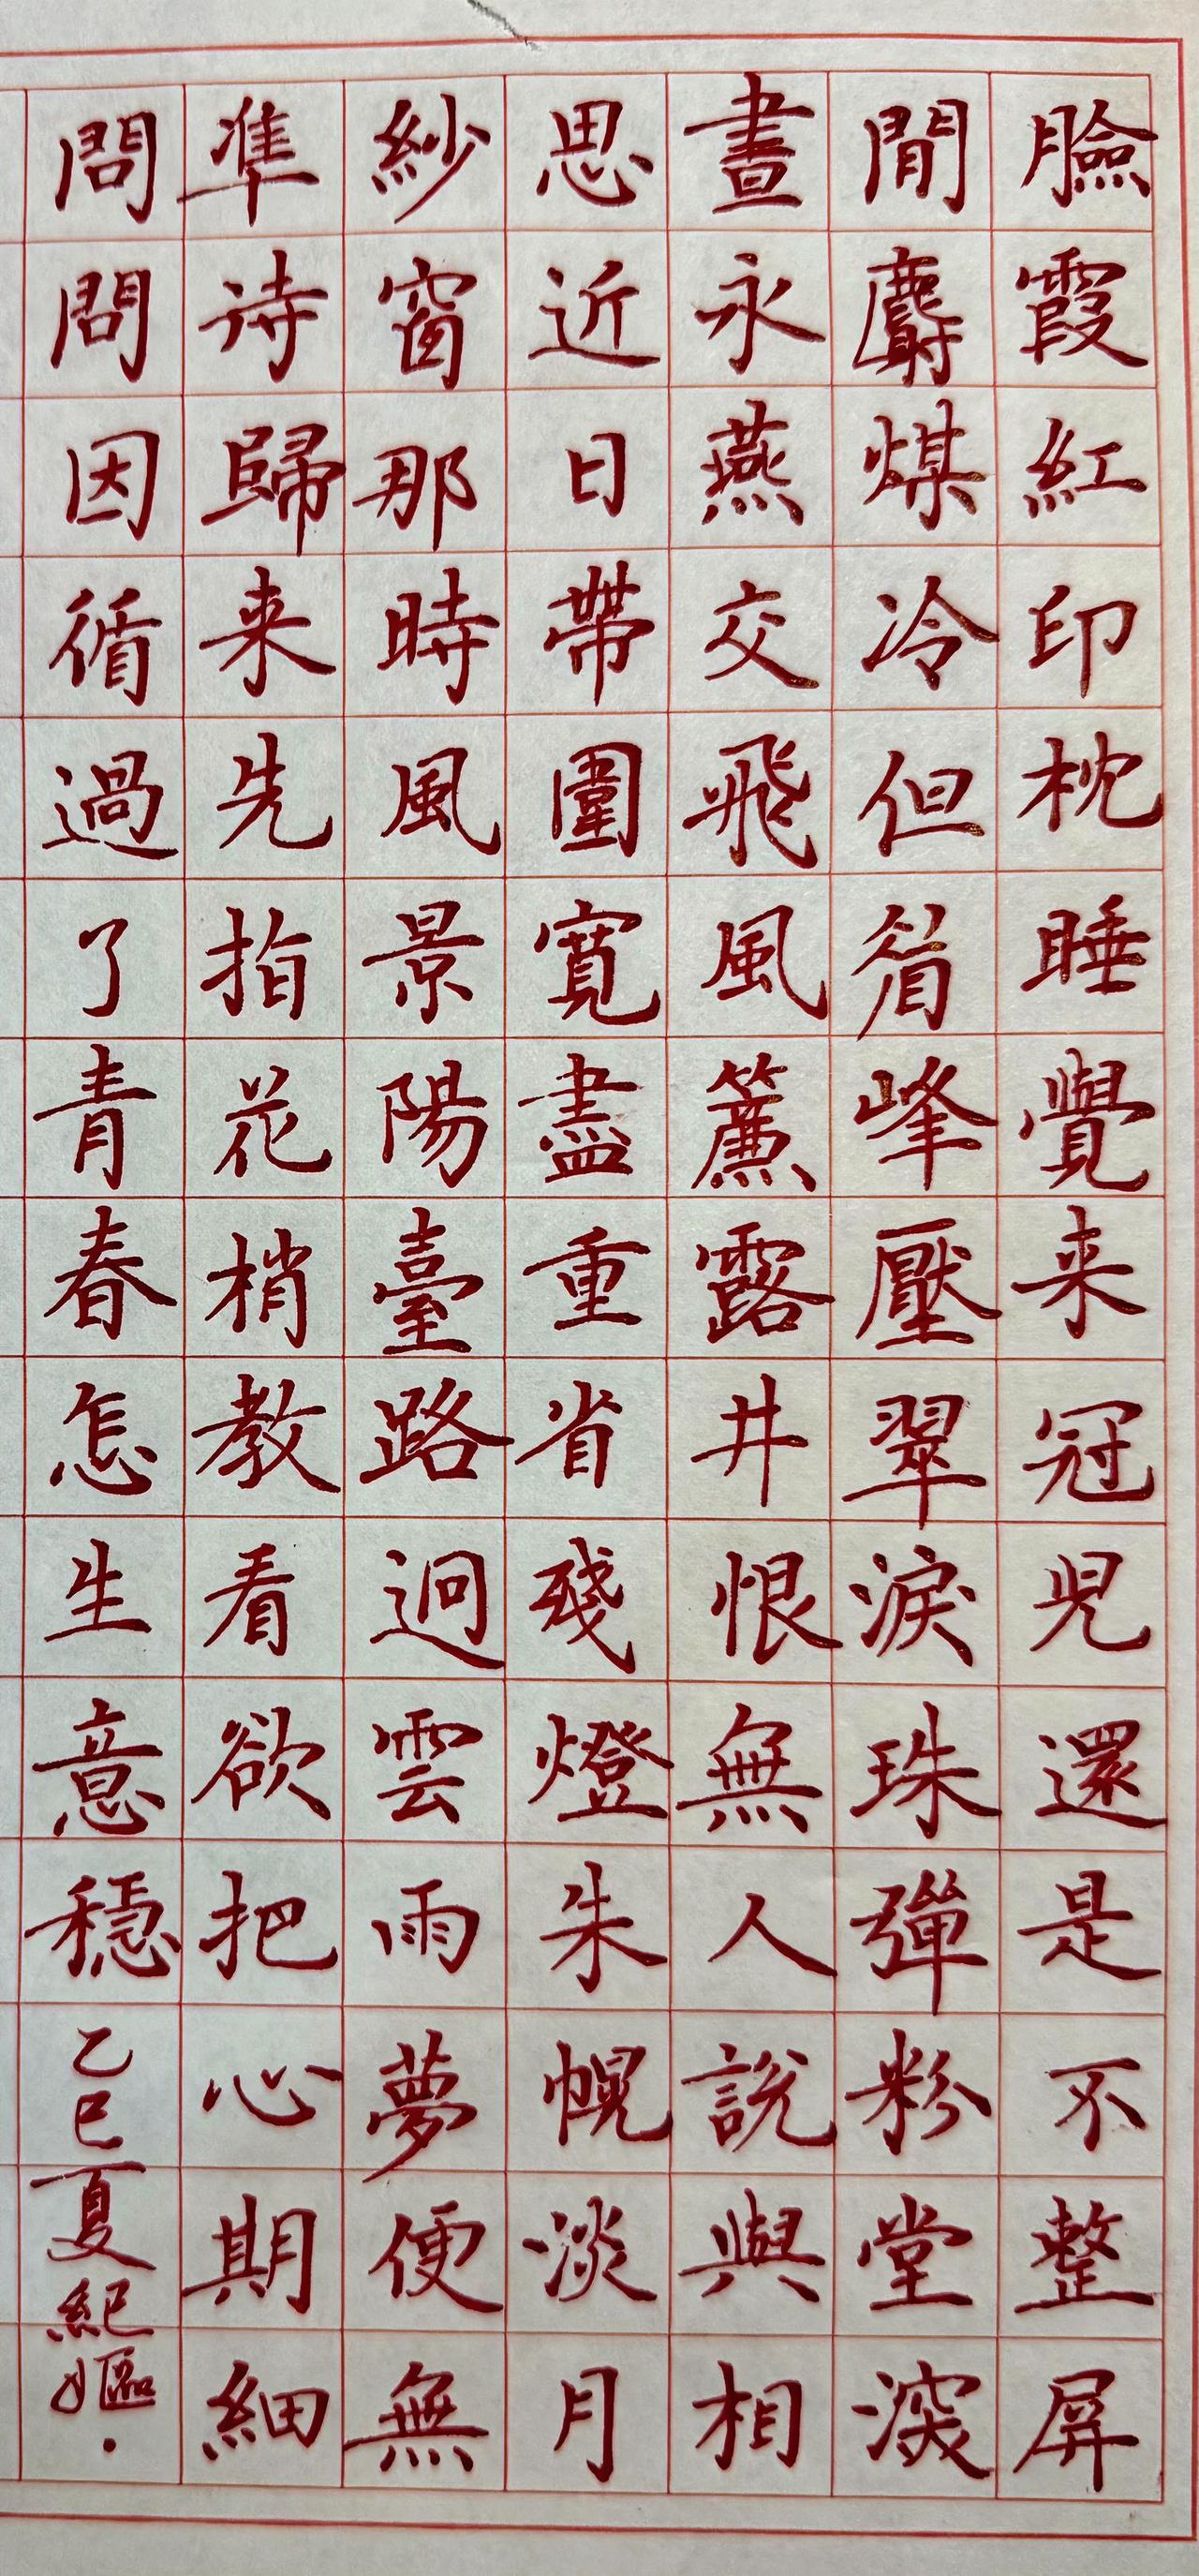 臉霞紅印枕睡覺来冠兒還是不整屏
閒麝煤冷但眉峰壓翠淚珠彈粉堂深
晝永燕交飛風簾露井恨無人說與相
思近日帶圍寬盡重省殘燈朱幌淡月
紗窗那時風景陽臺路迥雲雨夢便無
準待歸来先指花梢教看欲把心期細
問問因循過了青春怎生意穩
乙巳夏紀嫗